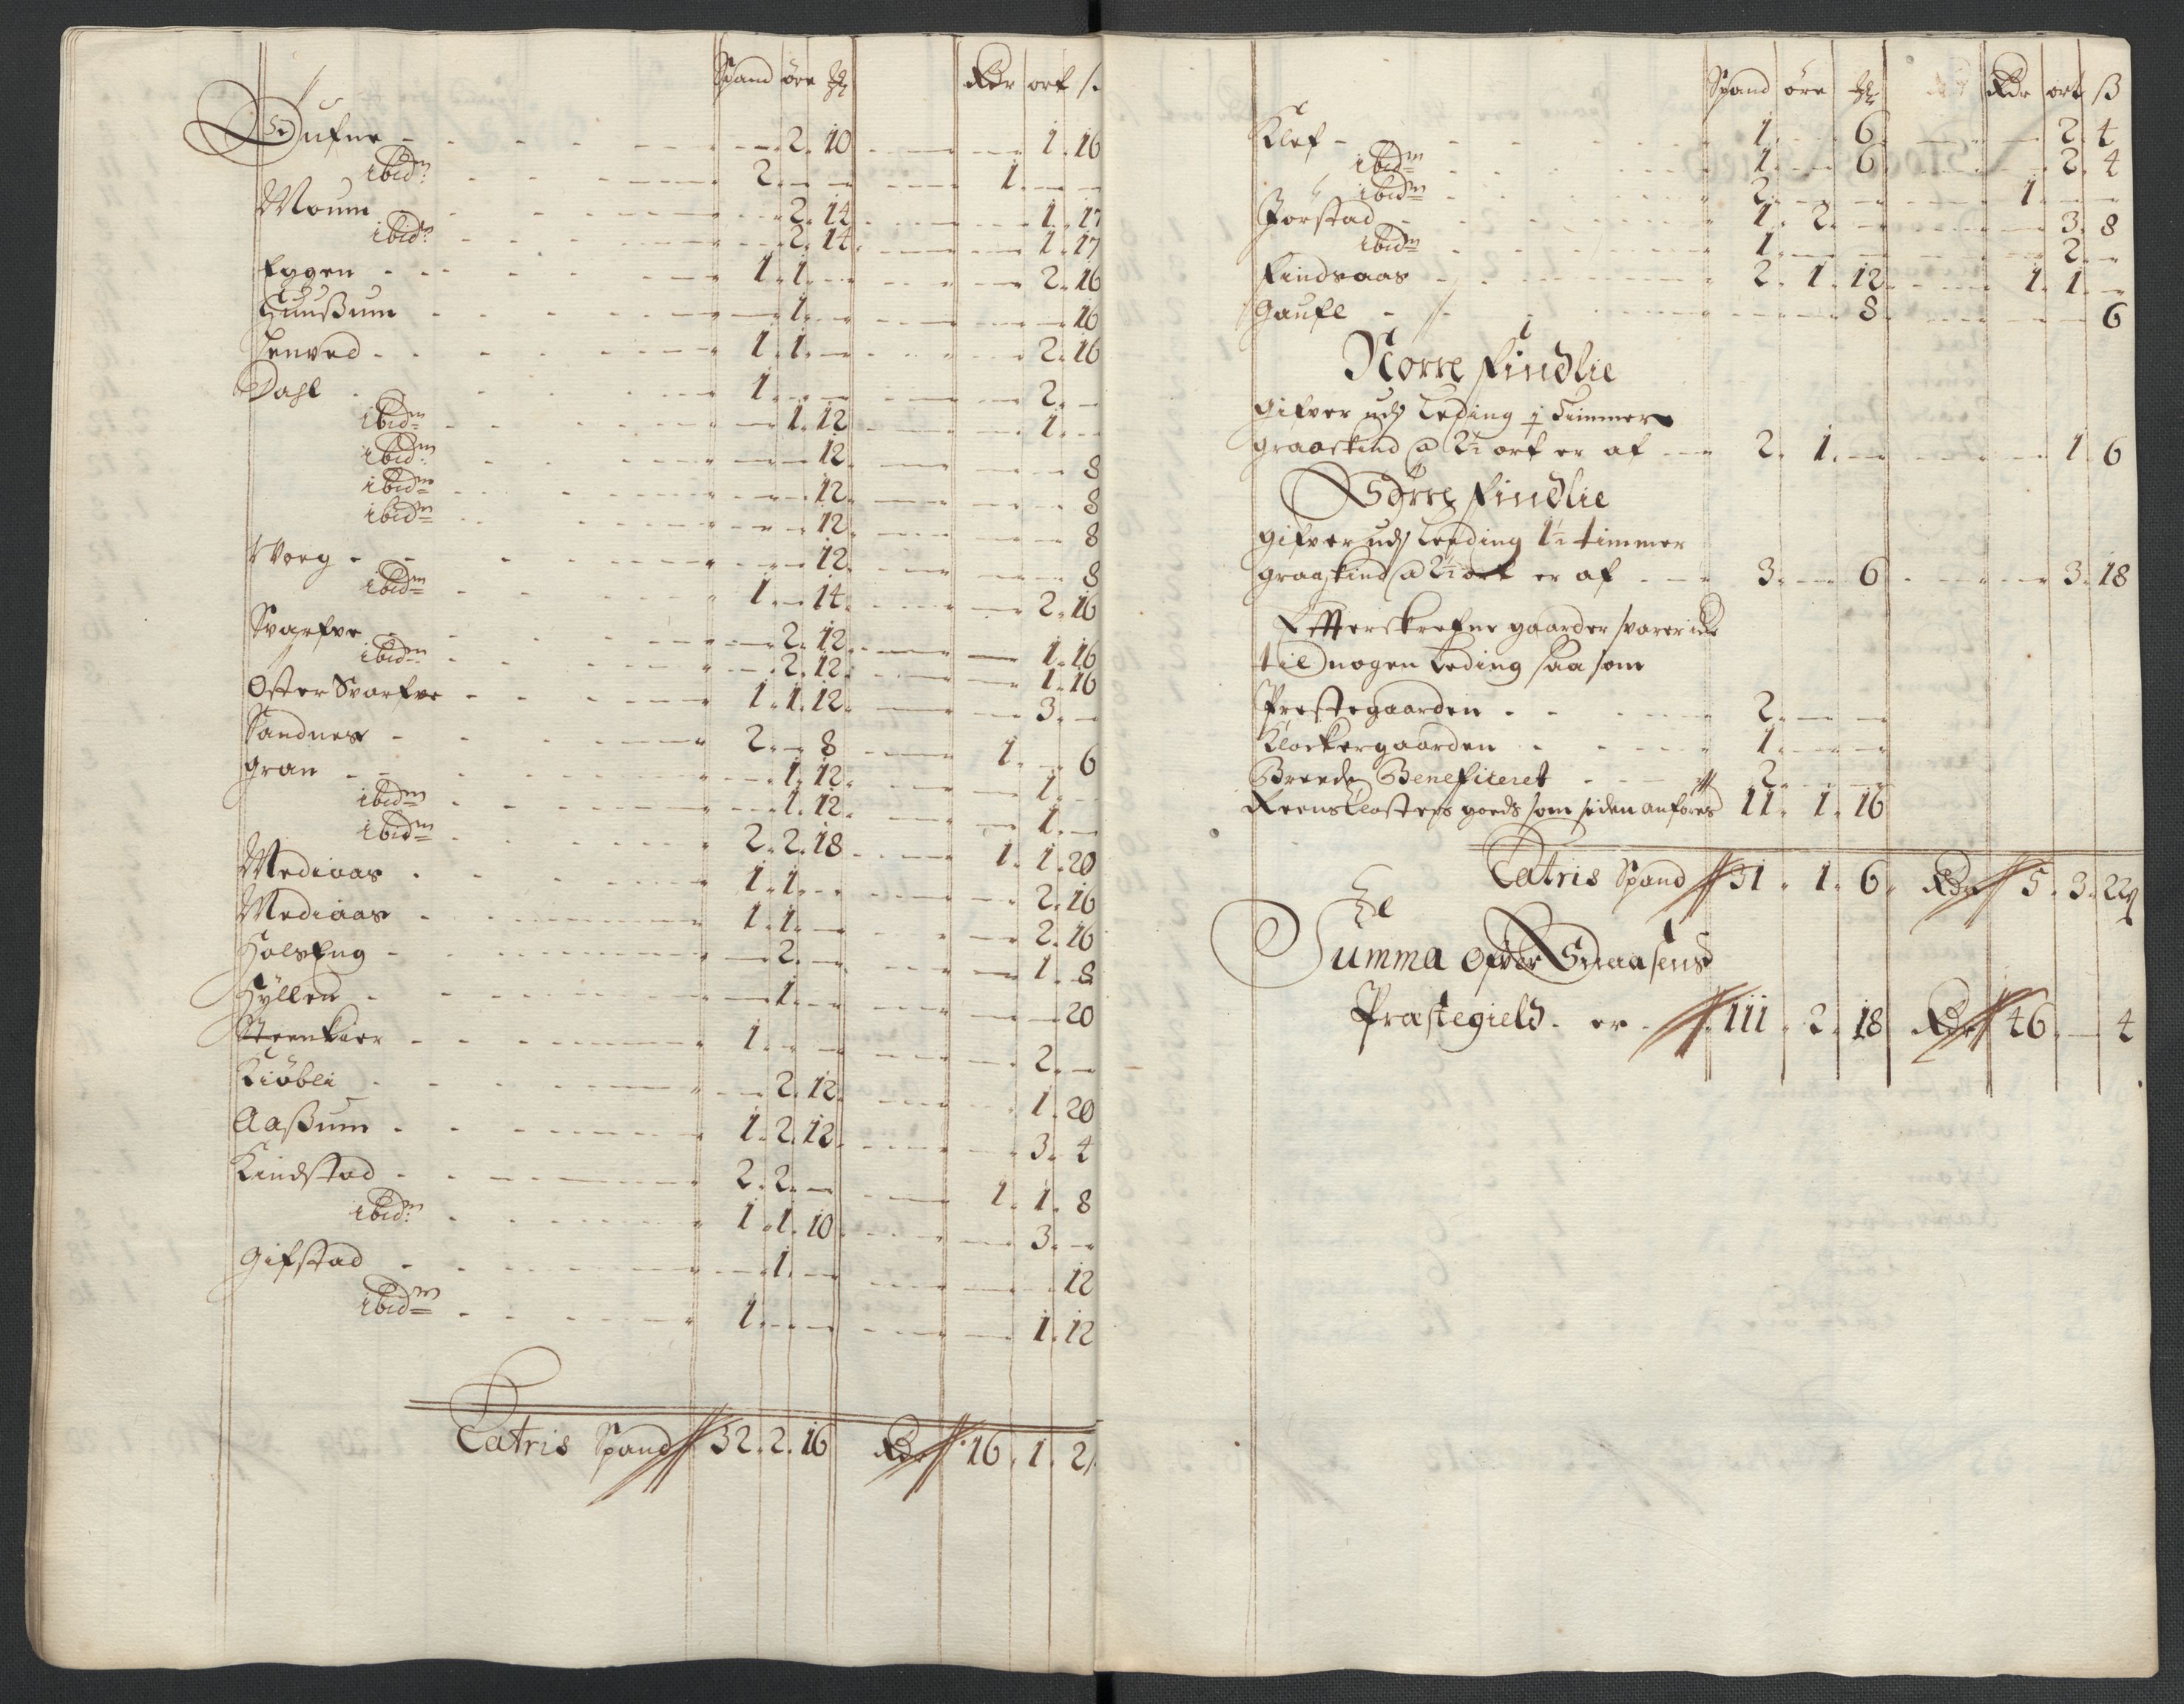 Spand øre Rdr ort s.
Sufne 2. 10 1. 16
ibidm 2. 1.
Moum 2. 14 1. 17
ibidm 2. 14. 1. 17
Eggen 1. 1. 2. 16
Huusßum 1. 16
Henved 1. 1. 2. 16
Dahl 1. 2.
ibidm 1. 12 1.
ibidm 12 8
ibidm 12 8
ibidm 12 8
Woeg 12 8
ibidm 1. 14. 2. 16
Svarfve 2. 12 1. 16
ibidm 2. 12. 1. 16
Øster Svarfve 1. 1. 12. 3.
Sandnes 2. 8 1. 6
Gran 1. 12. 1.
ibidm 1. 12. 1.
ibidm 2. 2. 18 1. 1. 20
Mediaas 1. 1. 2. 16
Mediaas 1. 1. 2. 16
Holsseng 2. 1. 8
Hyllen 1. 20
Steenkier 1. 2.
Kiøbli 2. 12. 1. 20
Aaßum 1. 2. 12. 3. 4
Kindstad 2. 2. 1. 1. 8
ibidm 1. 1. 10 3.
Gifstad 1. 12
ibidm 1. 1. 12
Latris Spand 32. 2. 16 Rdr 16. 1. 2
Spand øre Rdr ort ß
Klef 1. 6. 2. 4
ibidm 1. 6 2. 4
ibidm 2. 1.
Forstad 1. 2. 3. 8
ibidm 1. 2.
Findsaas 2. 1. 12 1. 1.
Gaufl 8 6
Norre Findlie
Gifver udj Leding 1 Timmer
graaskind a 2½ ort er af 2. 1. 1. 6
Sørre Findlie
Gifver udj Leeding 1½ timmer
graaskind a 2½ ort er af 3. 6 3. 18
Efterskrefne gaarder svarer icke
til nogen Leding saa som
Præstegaarden 2.
Klockergaarden 1.
Breede Beneficeret 2.
Reensklosters goeds som siden anføres 11. 1. 16
Latris Spand 31. 1. 6. Rdr 5. 3. 22
Summa ofver Snaasens
Præstegield er 111. 2. 18 Rdr 46. 4